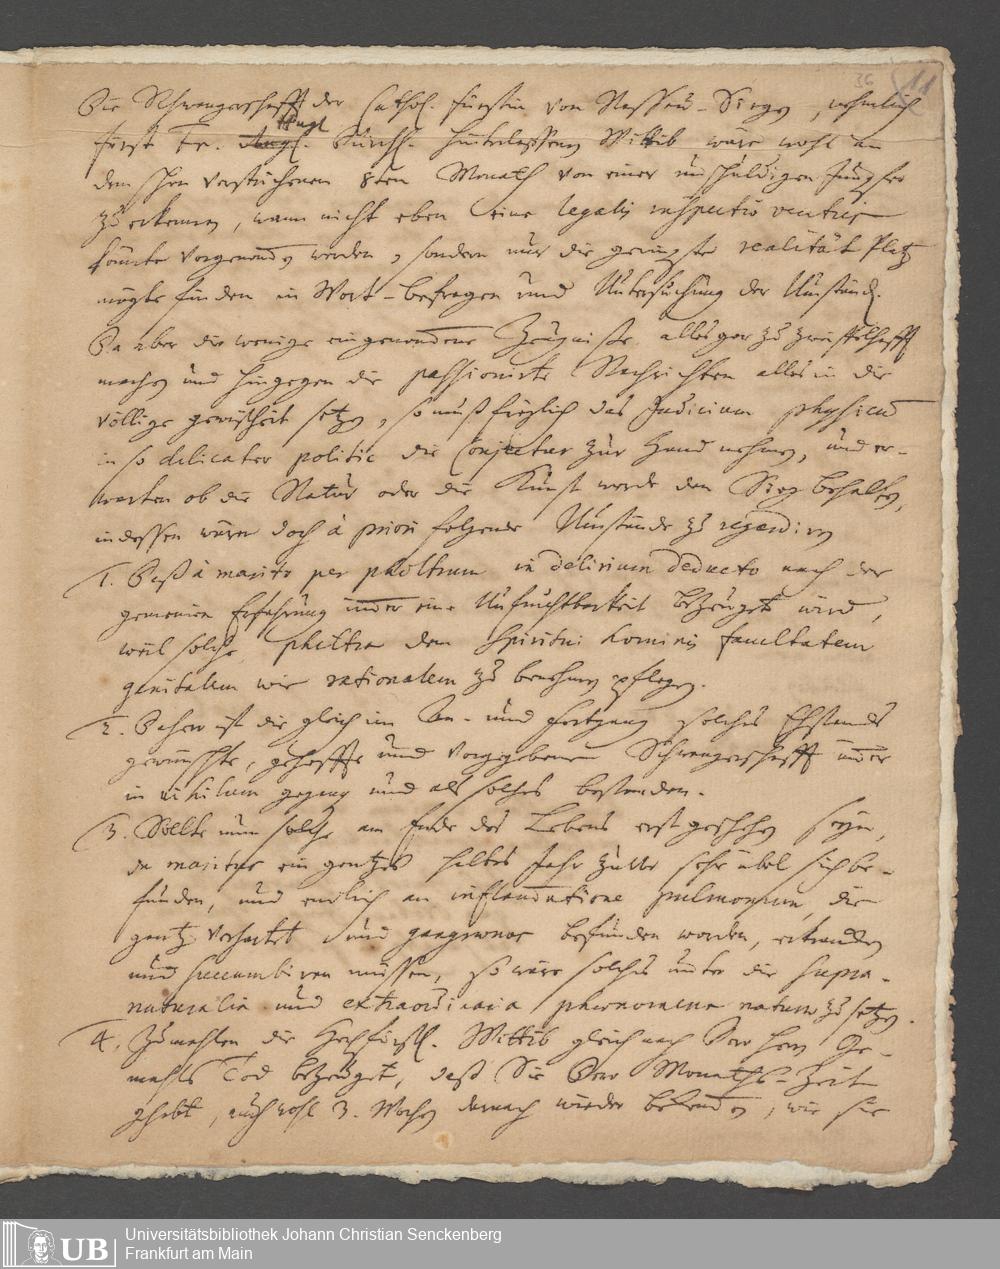 36 11
Die Schwangerschafft der Cathol. Fürstin von Nassau-Siegen, nehmlich
Fürst Fr. Hugl. Durchl. hinterlassenen Wittib wäre wohl an
dem schon verstrichenen 8ten Monath von einer unschuldigen Jungfer
zu erkennen, wann nicht eben eine legalis inspectio ventris
könnte vorgenommen werden, sondern nur die geringste realität Platz
mögte finden in Wort-befragen und Untersuchung der Umständ.
Da aber die wenige eingenommene Zeugnisse alles gar zu zweiffelhafft
machen und hingegen die passionirte Nachrichten alles in die
völlige gewißheit setzen, so muß freylich das Judicium physicum
in so delicater politic die Conjectur zur Hand nehmen, und er-
warten ob die Natur oder die Kunst werde den Sieg behalten,
indessen wären doch à priori folgende Umstände zu regardiren
1. Daß à marito per philtrum in delirium deducto nach der
gemeinen Erfahrung immer eine Unfruchtbarkeit bezeuget wird,
weil solche philtra den Spiritui hominis facultatem
genitalem wie rationalem zu benehmen pflegen.
2. Daher ist die gleich im An- und Fortgang solches Ehstands
gewünschte, gehoffte und vorgegebene Schwangerschafft immer
in nihilum gegangen und als solches bestanden.
3. Sollte nun solche am Ende des Lebens erst geschehen seyn,
da maritus ein gantzes halbes Jahr zuvor sehr übel sich be-
funden, und endlich an inflammatione pulmonum, die
gantz verhartet und gangrænos befunden worden, erkranken
und succumbiren müssen, so wäre solches unter die supra-
naturalia und extraordinaria phænomena naturæ zu setzen.
4. Zumahlen die Hochfürstl. Wittib gleich nach Dero Herrn Ge-
mahls Tod bezeuget, daß Sie Dero Monaths-Zeit
gehabt, auch wohl 3. Wochen darnach wieder bekommen, wie sie
UB Universitätsbibliothek Johann Christian Senckenberg
Frankfurt am Main